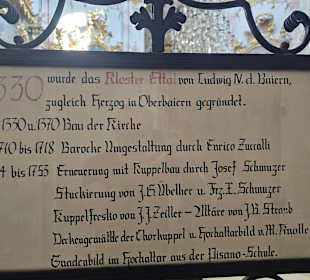 1330 wurde das Kloster Ettal von Ludwig IV. d. Baiern,
zugleich Herzog in Oberbaiern gegründet.
1330 u. 1370 Bau der Kirche
1710 bis 1718 Barocke Umgestaltung durch Enrico Zucalli
4 bis 1753 Erneuerung mit Kuppelbau durch Josef Schmuzer
Stuckierung von J.G. Üblher u. Frz. X. Schmuzer
Kuppelfresko von J.J. Zeiller - Altäre von J.B. Straub
Deckengemälde der Chorkuppel u. Hochaltarbild v. M. Knoller
Gnadenbild im Hochaltar aus der Pisano-Schule.